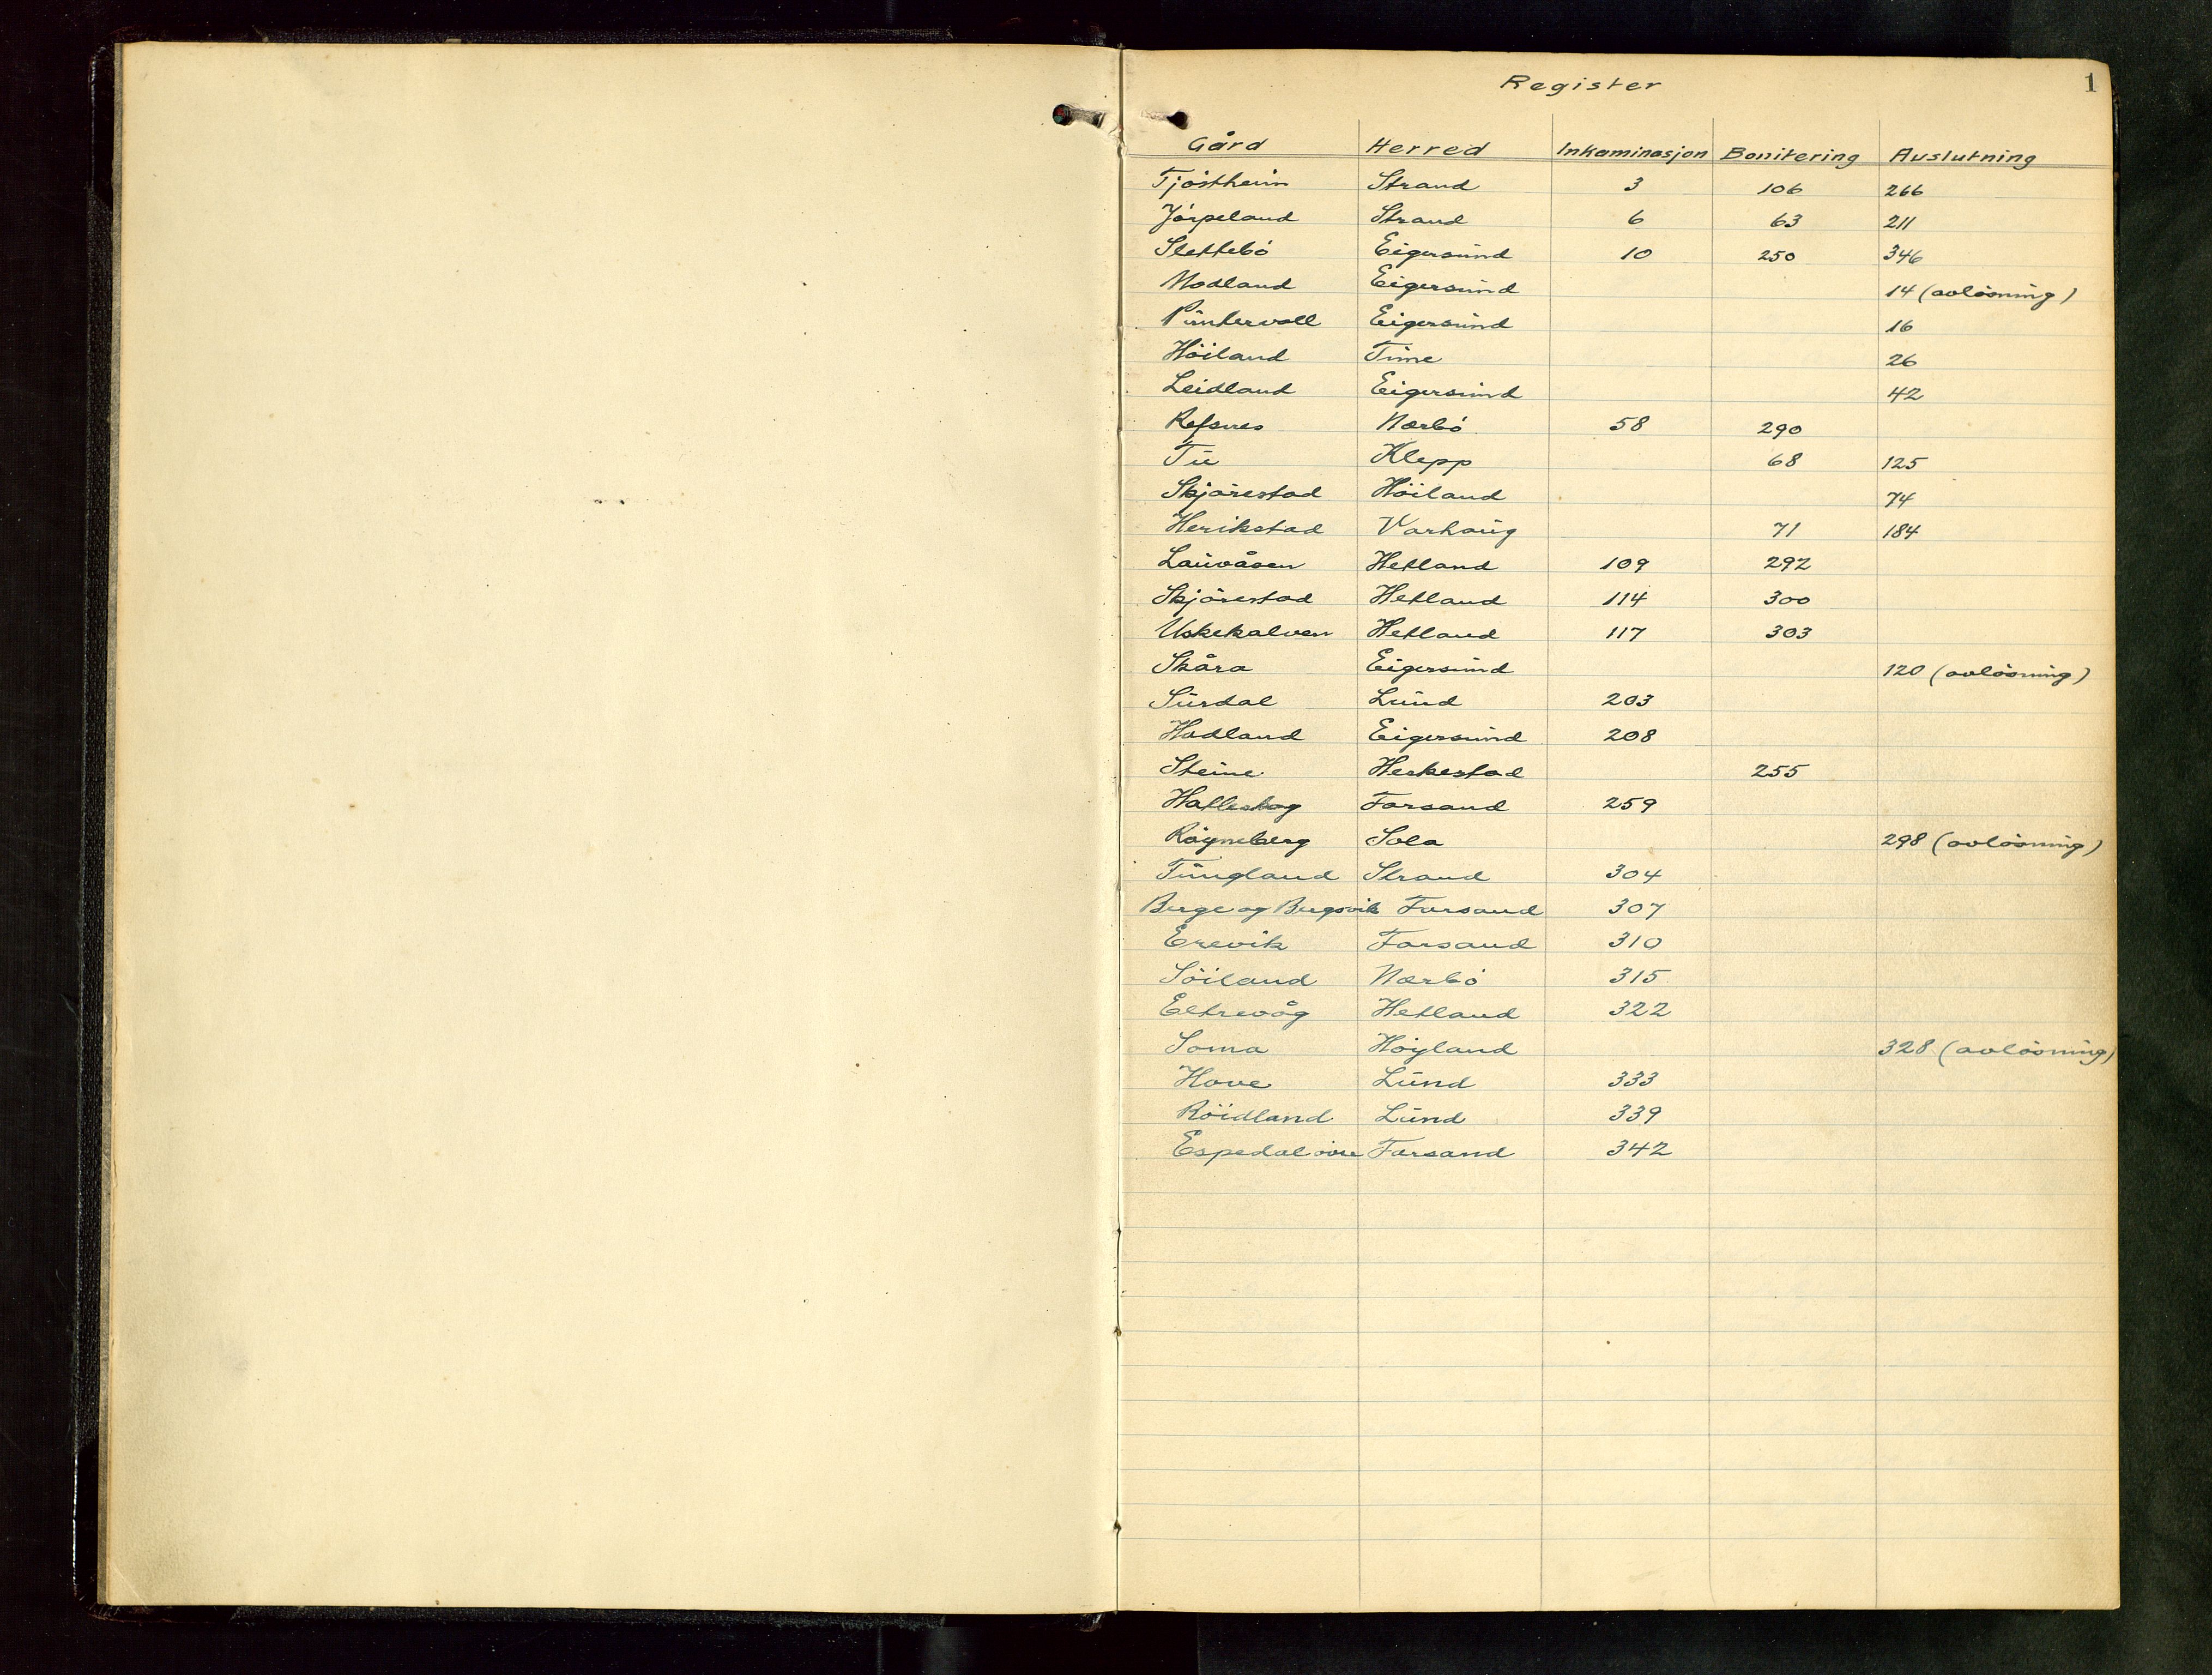 Register 1
Gård Herred Inkaminasjon Bonitering Avslutning
Tjöstheim Strand 3 106 266
Jörpeland Strand 6 63 211
Slettebö Eigersund 10 250 346
Modland Eigersund 14 (avlösning)
Puntervoll Eigersund 16
Höiland Time 26
Leidland Eigersund 42
Refsnes Nærbö 58 290
Tu Klepp 68 125
Skjörestad Höiland 74
Herikstad Varhaug 71 184
Lauvåsen Hetland 109 292
Skjörestad Hetland 114 300
Uskekalven Hetland 117 303
Skåra Eigersund 120 (avlösning)
Surdal Lund 203
Hadland Eigersund 208
Steine Heskestad 255
Hatleskog Forsand 259
Röyneberg Sola 298 (avlösning)
Tungland Strand 304
Berge og Bergsvik Forsand 307
Erevik Forsand 310
Söiland Nærbö 315
Eltrevåg Hetland 322
Soma Höyland 328 (avlösning)
Hove Lund 333
Röidland Lund 339
Espedal övre Forsand 342